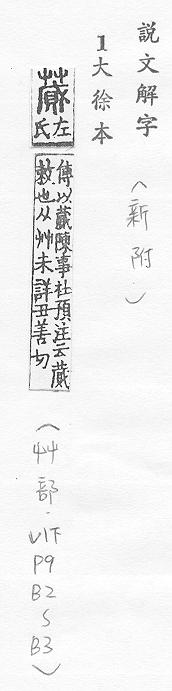 説文解字
（新附）
1大徐本
蕆
左氏
傳以蕆陳事杜預注云蕆
敕也从艸未詳丑善切
（艸部．V1下 P9 B2 ~ B3）